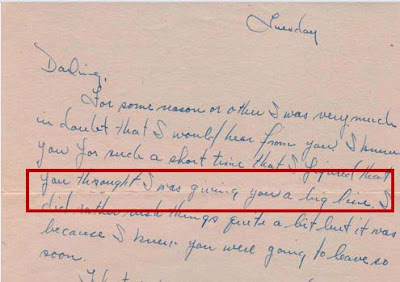 Tuesday
Darling,
For some reason or other I was very much
in doubt that I would hear from you. I knew
you for such a short time that I figured that
you throught I was giving you a big line. I
did rather rush things quite a bit but it was
because I knew you were going to leave so
soon.